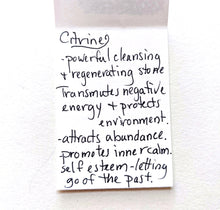 Citrine
-powerful cleansing
& regenerating stone
Transmutes negative
energy & protects
environment.
-attracts abundance.
promotes inner calm.
self esteem-letting
go of the past.